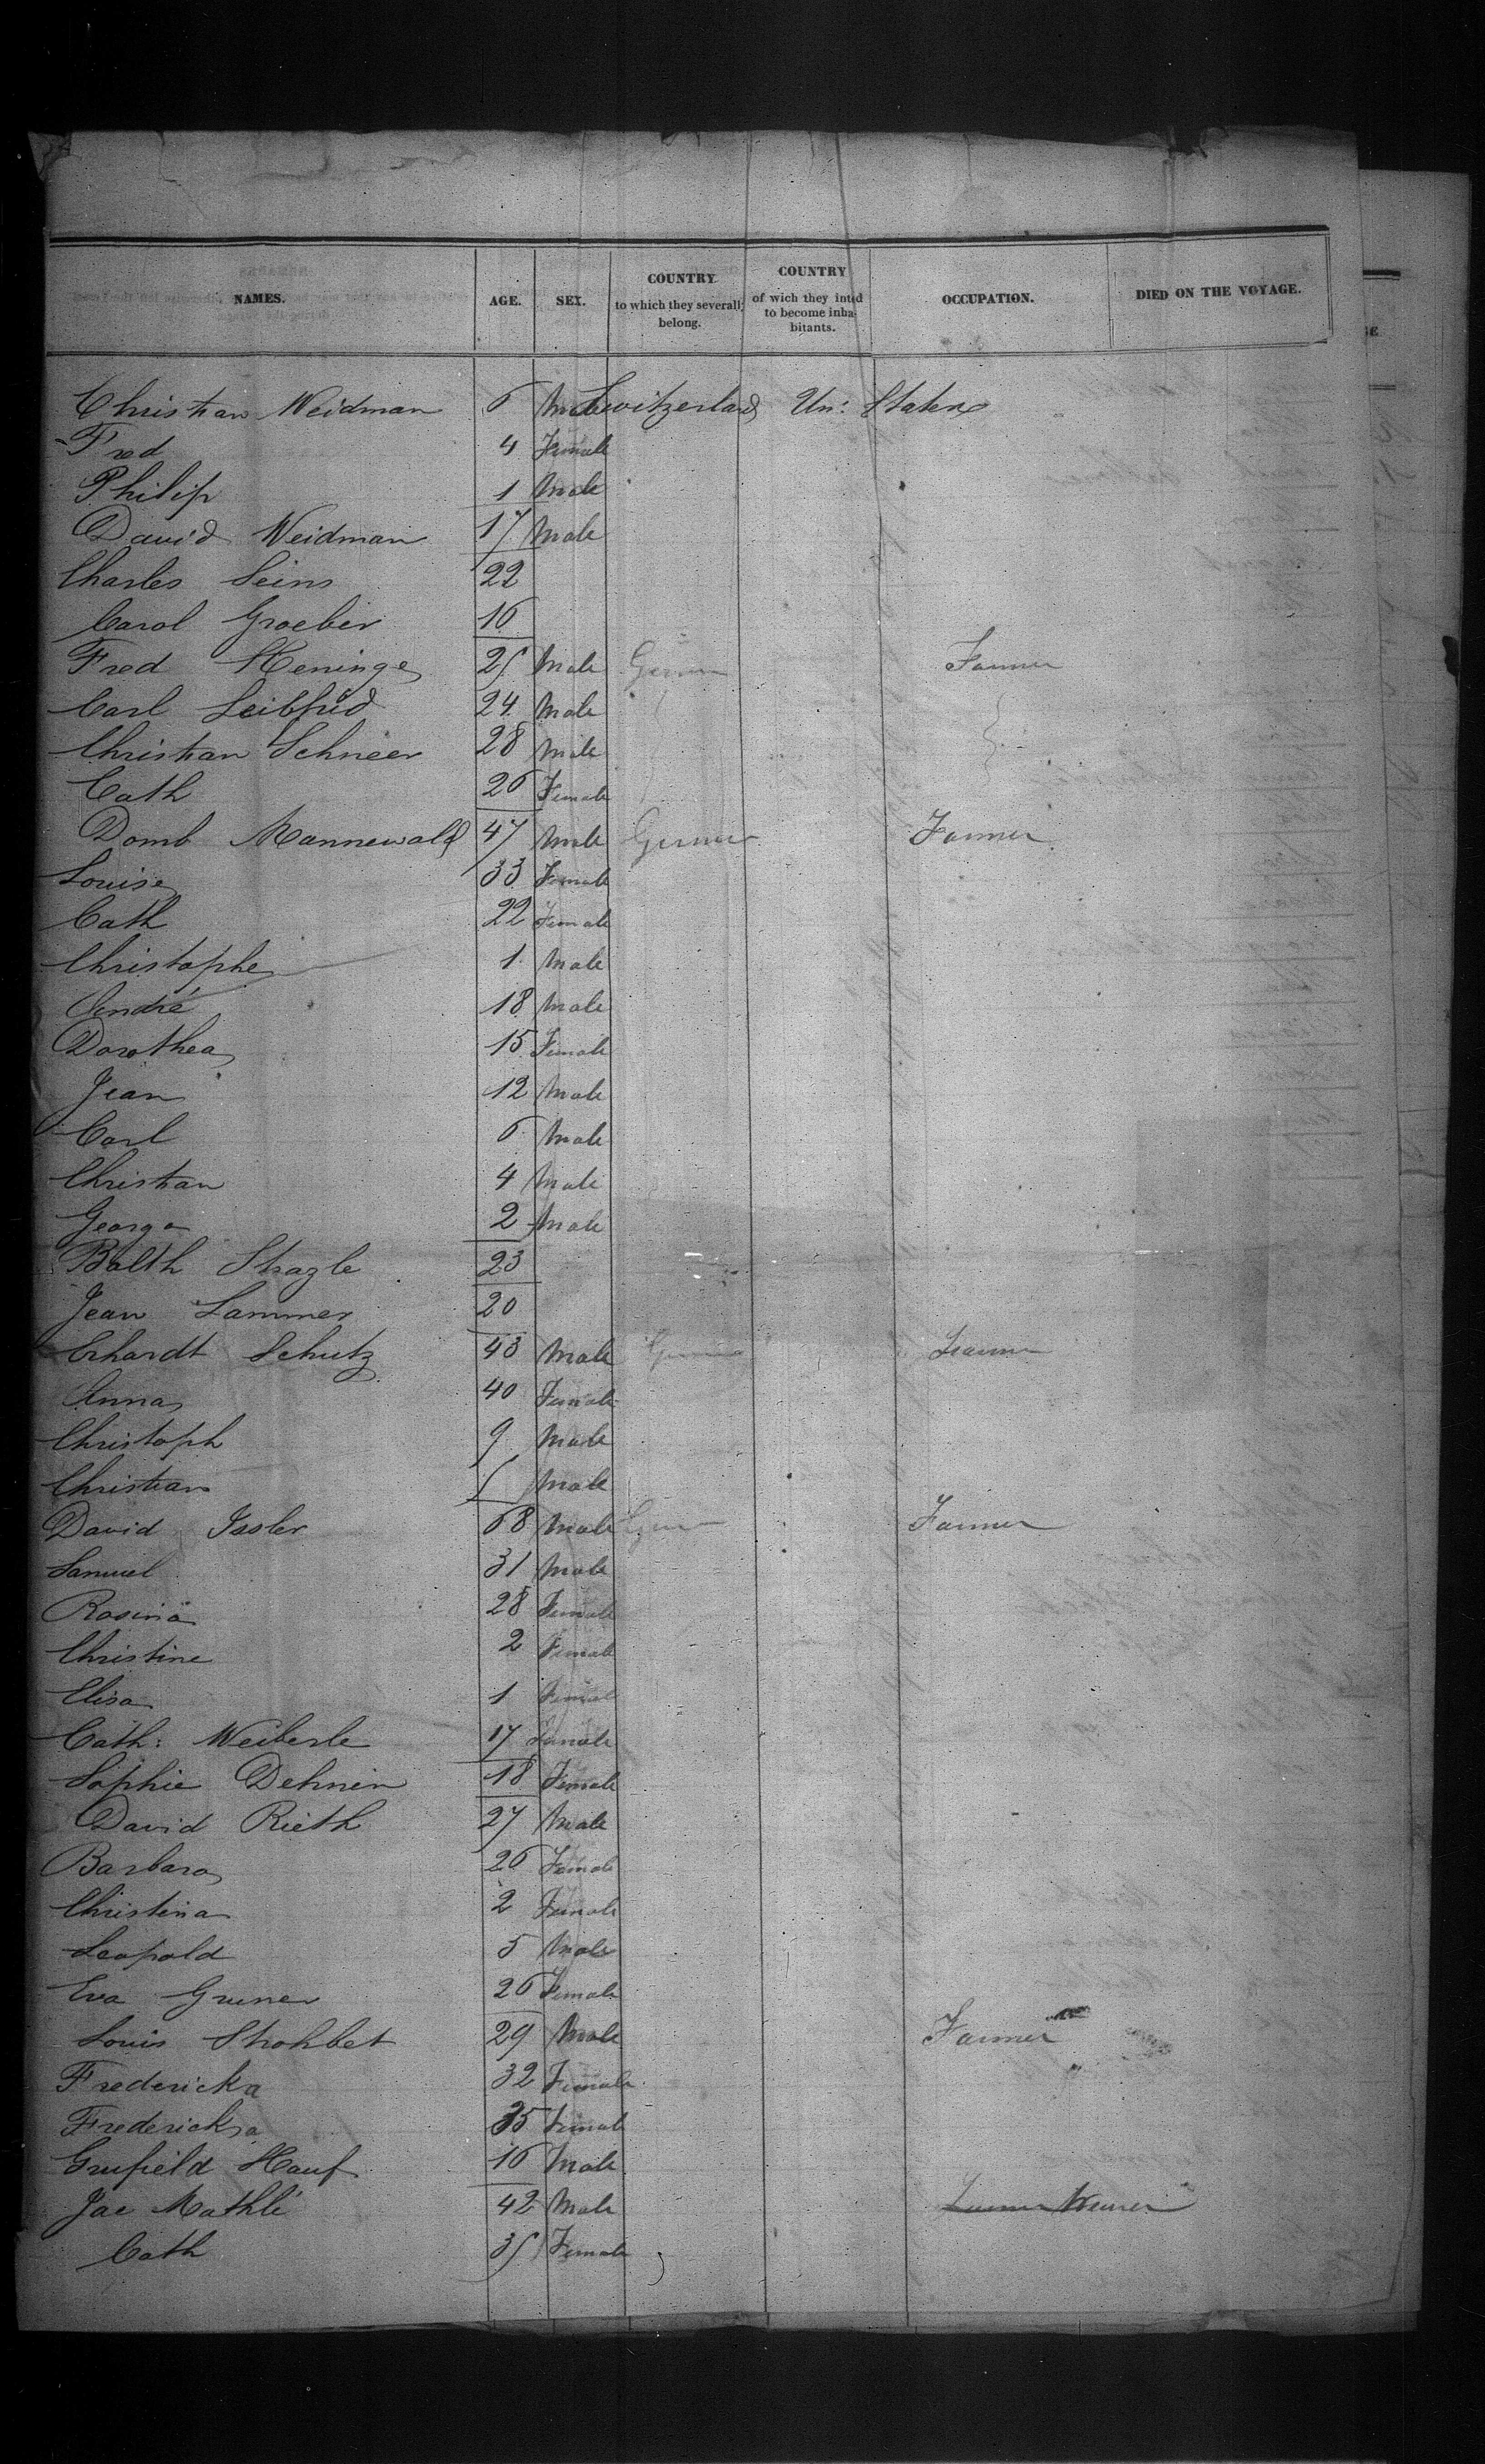 NAMES. AGE. SEX. COUNTRY to which they severally belong. COUNTRY of wich they inted to become inhabitants. OCCUPATION. DIED ON THE VOYAGE.
Christian Weidman 6 Male Switzerland Un: States
Fred 4 Female
Philip 1 Male
David Weidman 17 Male
Charles Seins 22
Carol Groeber 16
Fred Heninge 25 Male German Farmer
Carl Leibfrid 24 Male
Christian Schneer 28 Male
Cath 26 Female
Domb Mannewald 47 Male German Farmer
Louise 33 Female
Cath 22 Female
Christophe 1 Male
André 18 Male
Dorothea 15 Female
Jean 12 Male
Carl 6 Male
Christian 4 Male
George 2 Male
Balth Stragle 23
Jean Lammer 20
Erhardt Schutz 43 Male German Farmer
Anna 40 Female
Christoph 9 Male
Christian 5 Male
David Issler 68 Male Farmer
Samuel 31 Male
Rosina 28 Female
Christine 2 Female
Elisa 1 Female
Cath: Weiberle 17 Female
Sophie Dehnin 18 Female
David Rieth 27 Male
Barbara 26 Female
Christina 2 Female
Leopold 5 Male
Eva Gruner 26 Female
Louis Strohbet 29 Male Farmer
Fredericka 32 Female "
Fredericka 35 Female
Grufield Hauf 16 Male
Jac Mathlé 42 Male
Cath 35 Female